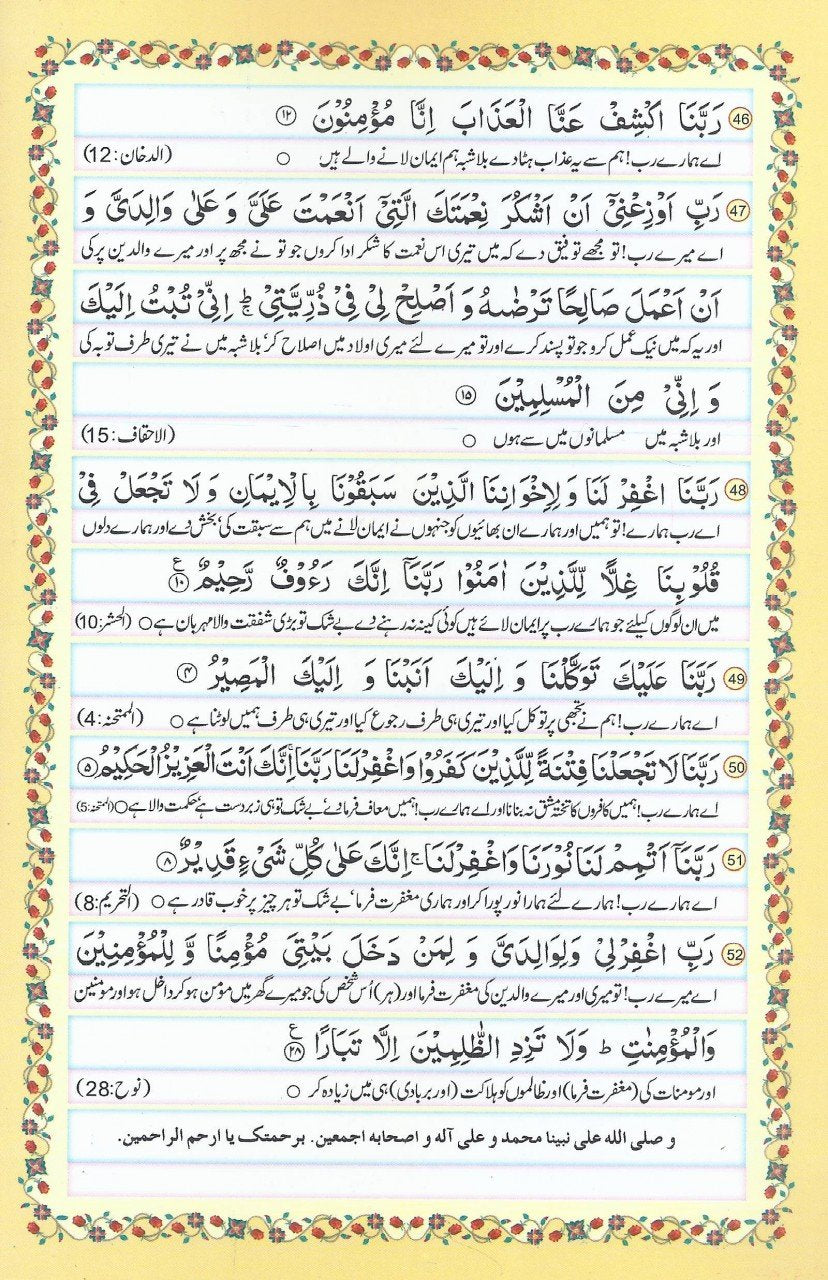 46 رَبَّنَا اكْشِفْ عَنَّا الْعَذَابَ اِنَّا مُؤْمِنُوْنَ ۱۲
اے ہمارے رب! ہم سے یہ عذاب ہٹا دے بلاشبہ ہم ایمان لانے والے ہیں ○ (الدخان:12)
47 رَبِّ اَوْزِعْنِيْٓ اَنْ اَشْكُرَ نِعْمَتَكَ الَّتِيْٓ اَنْعَمْتَ عَلَيَّ وَ عَلٰى وَالِدَيَّ وَ
اے میرے رب! تو مجھے توفیق دے کہ میں تیری اس نعمت کا شکر ادا کروں جو تو نے مجھ پر اور میرے والدین پر کی
اَنْ اَعْمَلَ صَالِحًا تَرْضٰىهُ وَ اَصْلِحْ لِيْ فِيْ ذُرِّيَّتِيْ ۚؕ اِنِّيْ تُبْتُ اِلَيْكَ
اور یہ کہ میں نیک عمل کرو جو تو پسند کرے اور تو میرے لئے میری اولاد میں اصلاح کر' بلاشبہ میں نے تیری طرف توبہ کی
وَ اِنِّيْ مِنَ الْمُسْلِمِيْنَ ۱۵
اور بلاشبہ میں مسلمانوں میں سے ہوں ○ (الاحقاف:15)
48 رَبَّنَا اغْفِرْ لَنَا وَ لِاِخْوَانِنَا الَّذِيْنَ سَبَقُوْنَا بِالْاِيْمَانِ وَ لَا تَجْعَلْ فِيْ
اے رب ہمارے! تو ہمیں اور ہمارے ان بھائیوں کو جنہوں نے ایمان لانے میں ہم سے سبقت کی' بخش دے اور ہمارے دلوں
قُلُوْبِنَا غِلًّا لِّلَّذِيْنَ اٰمَنُوْا رَبَّنَآ اِنَّكَ رَءُوْفٌ رَّحِيْمٌ ۱۰ ع
میں ان لوگوں کیلئے جو ہمارے رب پر ایمان لائے ہیں کوئی کینہ نہ رہنے دے بے شک تو بڑی شفقت والا مہربان ہے ○ (الحشر:10)
49 رَبَّنَا عَلَيْكَ تَوَكَّلْنَا وَ اِلَيْكَ اَنَبْنَا وَ اِلَيْكَ الْمَصِيْرُ ۴
اے ہمارے رب! ہم نے تجھی پر توکل کیا اور تیری ہی طرف رجوع کیا اور تیری ہی طرف ہمیں لوٹنا ہے ○ (الممتحنہ:4)
50 رَبَّنَا لَا تَجْعَلْنَا فِتْنَةً لِّلَّذِيْنَ كَفَرُوْا وَاغْفِرْ لَنَا رَبَّنَا ۚ اِنَّكَ اَنْتَ الْعَزِيْزُ الْحَكِيْمُ ۵
اے ہمارے رب! ہمیں کافروں کا تختۂ مشق نہ بنانا اور اے ہمارے رب! ہمیں معاف فرما دے' بے شک تو ہی زبردست ہے' حکمت والا ہے ○ (الممتحنہ:5)
51 رَبَّنَآ اَتْمِمْ لَنَا نُوْرَنَا وَاغْفِرْ لَنَا ۚ اِنَّكَ عَلٰى كُلِّ شَيْءٍ قَدِيْرٌ ۸
اے ہمارے رب! ہمارے لئے ہمارا نور پورا کر اور ہماری مغفرت فرما' بے شک تو ہر چیز پر خوب قادر ہے ○ (التحریم:8)
52 رَبِّ اغْفِرْلِيْ وَلِوَالِدَيَّ وَ لِمَنْ دَخَلَ بَيْتِيَ مُؤْمِنًا وَّ لِلْمُؤْمِنِيْنَ
اے میرے رب! تو میری اور میرے والدین کی مغفرت فرما اور (ہر) اُس شخص کی جو میرے گھر میں مومن ہو کر داخل ہو اور مومنین
وَالْمُؤْمِنٰتِ ؕ وَلَا تَزِدِ الظّٰلِمِيْنَ اِلَّا تَبَارًا ۲۸ ع
اور مومنات کی (مغفرت فرما) اور ظالموں کو ہلاکت (اور بربادی) ہی میں زیادہ کر ○ (نوح:28)
و صلی الله علی نبینا محمد و علی آله و اصحابه اجمعین. برحمتک یا ارحم الراحمین.